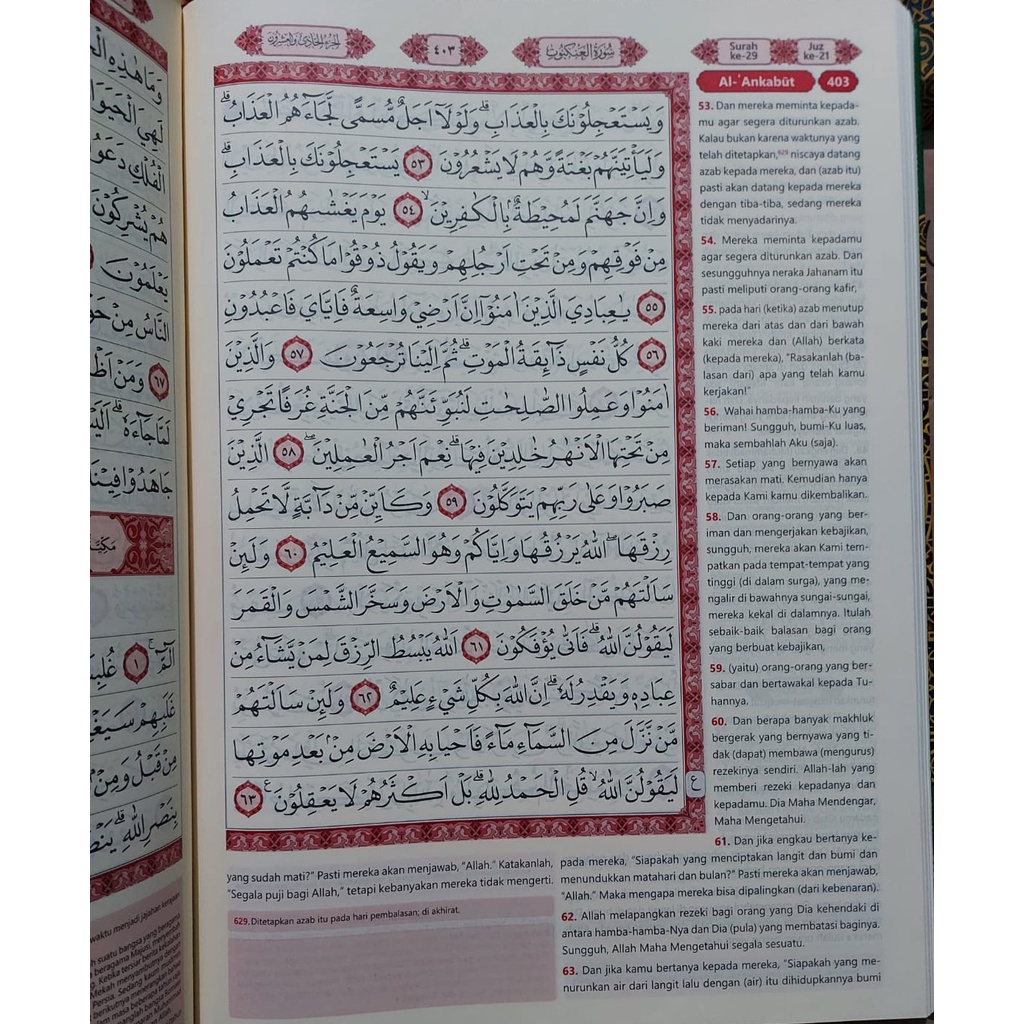 الجزء الحادي والعشرون
٤٠٣
سورة العنكبوت
Surah ke-29
Juz ke-21
وَيَسْتَعْجِلُوْنَكَ بِالْعَذَابِۗ وَلَوْلَآ اَجَلٌ مُّسَمًّى لَّجَاۤءَهُمُ الْعَذَابُۗ
وَلَيَأْتِيَنَّهُمْ بَغْتَةً وَّهُمْ لَا يَشْعُرُوْنَ ٥٣ يَسْتَعْجِلُوْنَكَ بِالْعَذَابِۗ
وَاِنَّ جَهَنَّمَ لَمُحِيْطَةٌۢ بِالْكٰفِرِيْنَۙ ٥٤ يَوْمَ يَغْشٰىهُمُ الْعَذَابُ
مِنْ فَوْقِهِمْ وَمِنْ تَحْتِ اَرْجُلِهِمْ وَيَقُوْلُ ذُوْقُوْا مَا كُنْتُمْ تَعْمَلُوْنَ
٥٥ يٰعِبَادِيَ الَّذِيْنَ اٰمَنُوْٓا اِنَّ اَرْضِيْ وَاسِعَةٌ فَاِيَّايَ فَاعْبُدُوْنِ
٥٦ كُلُّ نَفْسٍ ذَاۤىِٕقَةُ الْمَوْتِۗ ثُمَّ اِلَيْنَا تُرْجَعُوْنَ ٥٧ وَالَّذِيْنَ
اٰمَنُوْا وَعَمِلُوا الصّٰلِحٰتِ لَنُبَوِّئَنَّهُمْ مِّنَ الْجَنَّةِ غُرَفًا تَجْرِيْ
مِنْ تَحْتِهَا الْاَنْهٰرُ خٰلِدِيْنَ فِيْهَاۗ نِعْمَ اَجْرُ الْعٰمِلِيْنَۖ ٥٨ الَّذِيْنَ
صَبَرُوْا وَعَلٰى رَبِّهِمْ يَتَوَكَّلُوْنَ ٥٩ وَكَاَيِّنْ مِّنْ دَاۤبَّةٍ لَّا تَحْمِلُ
رِزْقَهَاۖ اللّٰهُ يَرْزُقُهَا وَاِيَّاكُمْ وَهُوَ السَّمِيْعُ الْعَلِيْمُ ٦٠ وَلَىِٕنْ
سَاَلْتَهُمْ مَّنْ خَلَقَ السَّمٰوٰتِ وَالْاَرْضَ وَسَخَّرَ الشَّمْسَ وَالْقَمَرَ
لَيَقُوْلُنَّ اللّٰهُۗ فَاَنّٰى يُؤْفَكُوْنَ ٦١ اَللّٰهُ يَبْسُطُ الرِّزْقَ لِمَنْ يَّشَاۤءُ مِنْ
عِبَادِهٖ وَيَقْدِرُ لَهٗۗ اِنَّ اللّٰهَ بِكُلِّ شَيْءٍ عَلِيْمٌ ٦٢ وَلَىِٕنْ سَاَلْتَهُمْ
مَّنْ نَّزَّلَ مِنَ السَّمَاۤءِ مَاۤءً فَاَحْيَا بِهِ الْاَرْضَ مِنْۢ بَعْدِ مَوْتِهَا
لَيَقُوْلُنَّ اللّٰهُۙ قُلِ الْحَمْدُ لِلّٰهِۗ بَلْ اَكْثَرُهُمْ لَا يَعْقِلُوْنَ ࣖ ٦٣
ع
Al-'Ankabūt 403
53. Dan mereka meminta kepada-
mu agar segera diturunkan azab.
Kalau bukan karena waktunya yang
telah ditetapkan,⁶²⁹ niscaya datang
azab kepada mereka, dan (azab itu)
pasti akan datang kepada mereka
dengan tiba-tiba, sedang mereka
tidak menyadarinya.
54. Mereka meminta kepadamu
agar segera diturunkan azab. Dan
sesungguhnya neraka Jahanam itu
pasti meliputi orang-orang kafir,
55. pada hari (ketika) azab menutup
mereka dari atas dan dari bawah
kaki mereka dan (Allah) berkata
(kepada mereka), "Rasakanlah (ba-
lasan dari) apa yang telah kamu
kerjakan!"
56. Wahai hamba-hamba-Ku yang
beriman! Sungguh, bumi-Ku luas,
maka sembahlah Aku (saja).
57. Setiap yang bernyawa akan
merasakan mati. Kemudian hanya
kepada Kami kamu dikembalikan.
58. Dan orang-orang yang ber-
iman dan mengerjakan kebajikan,
sungguh, mereka akan Kami tem-
patkan pada tempat-tempat yang
tinggi (di dalam surga), yang me-
ngalir di bawahnya sungai-sungai,
mereka kekal di dalamnya. Itulah
sebaik-baik balasan bagi orang
yang berbuat kebajikan,
59. (yaitu) orang-orang yang ber-
sabar dan bertawakal kepada Tu-
hannya.
60. Dan berapa banyak makhluk
bergerak yang bernyawa yang ti-
dak (dapat) membawa (mengurus)
rezekinya sendiri. Allah-lah yang
memberi rezeki kepadanya dan
kepadamu. Dia Maha Mendengar,
Maha Mengetahui.
61. Dan jika engkau bertanya ke-
pada mereka, "Siapakah yang menciptakan langit dan bumi dan
menundukkan matahari dan bulan?" Pasti mereka akan menjawab,
"Allah." Maka mengapa mereka bisa dipalingkan (dari kebenaran).
62. Allah melapangkan rezeki bagi orang yang Dia kehendaki di
antara hamba-hamba-Nya dan Dia (pula) yang membatasi baginya.
Sungguh, Allah Maha Mengetahui segala sesuatu.
63. Dan jika kamu bertanya kepada mereka, "Siapakah yang me-
nurunkan air dari langit lalu dengan (air) itu dihidupkannya bumi
yang sudah mati?" Pasti mereka akan menjawab, "Allah." Katakanlah,
"Segala puji bagi Allah," tetapi kebanyakan mereka tidak mengerti.
629. Ditetapkan azab itu pada hari pembalasan; di akhirat.
وَمَا هٰذِهِ
لَهِيَ الْحَيَوَا
الْفُلْكِ دَعَوُا
هُمْ يُشْرِكُوْنَ
يَعْلَمُوْنَ
النَّاسُ مِنْ
٦٧ وَمَنْ
لَمَّا جَاۤءَهٗۗ اَلَيْسَ
جَاهَدُوْا فِيْنَا
الۤمّۤ ۚ ١ غُلِبَ
غَلَبِهِمْ سَيَغْ
مِنْ قَبْلُ وَمِنْۢ
بِنَصْرِ اللّٰهِۗ يَنْصُ
waktu menjadi jajahan kerajaan
suatu bangsa yang beragama
beragama Majusi, menyembah
Ketika tersiar berita kekalahan
Mekah menyambutnya dengan
Persia. Sedang
berikutnya menerangkan bahwa
masa beberapa tahun